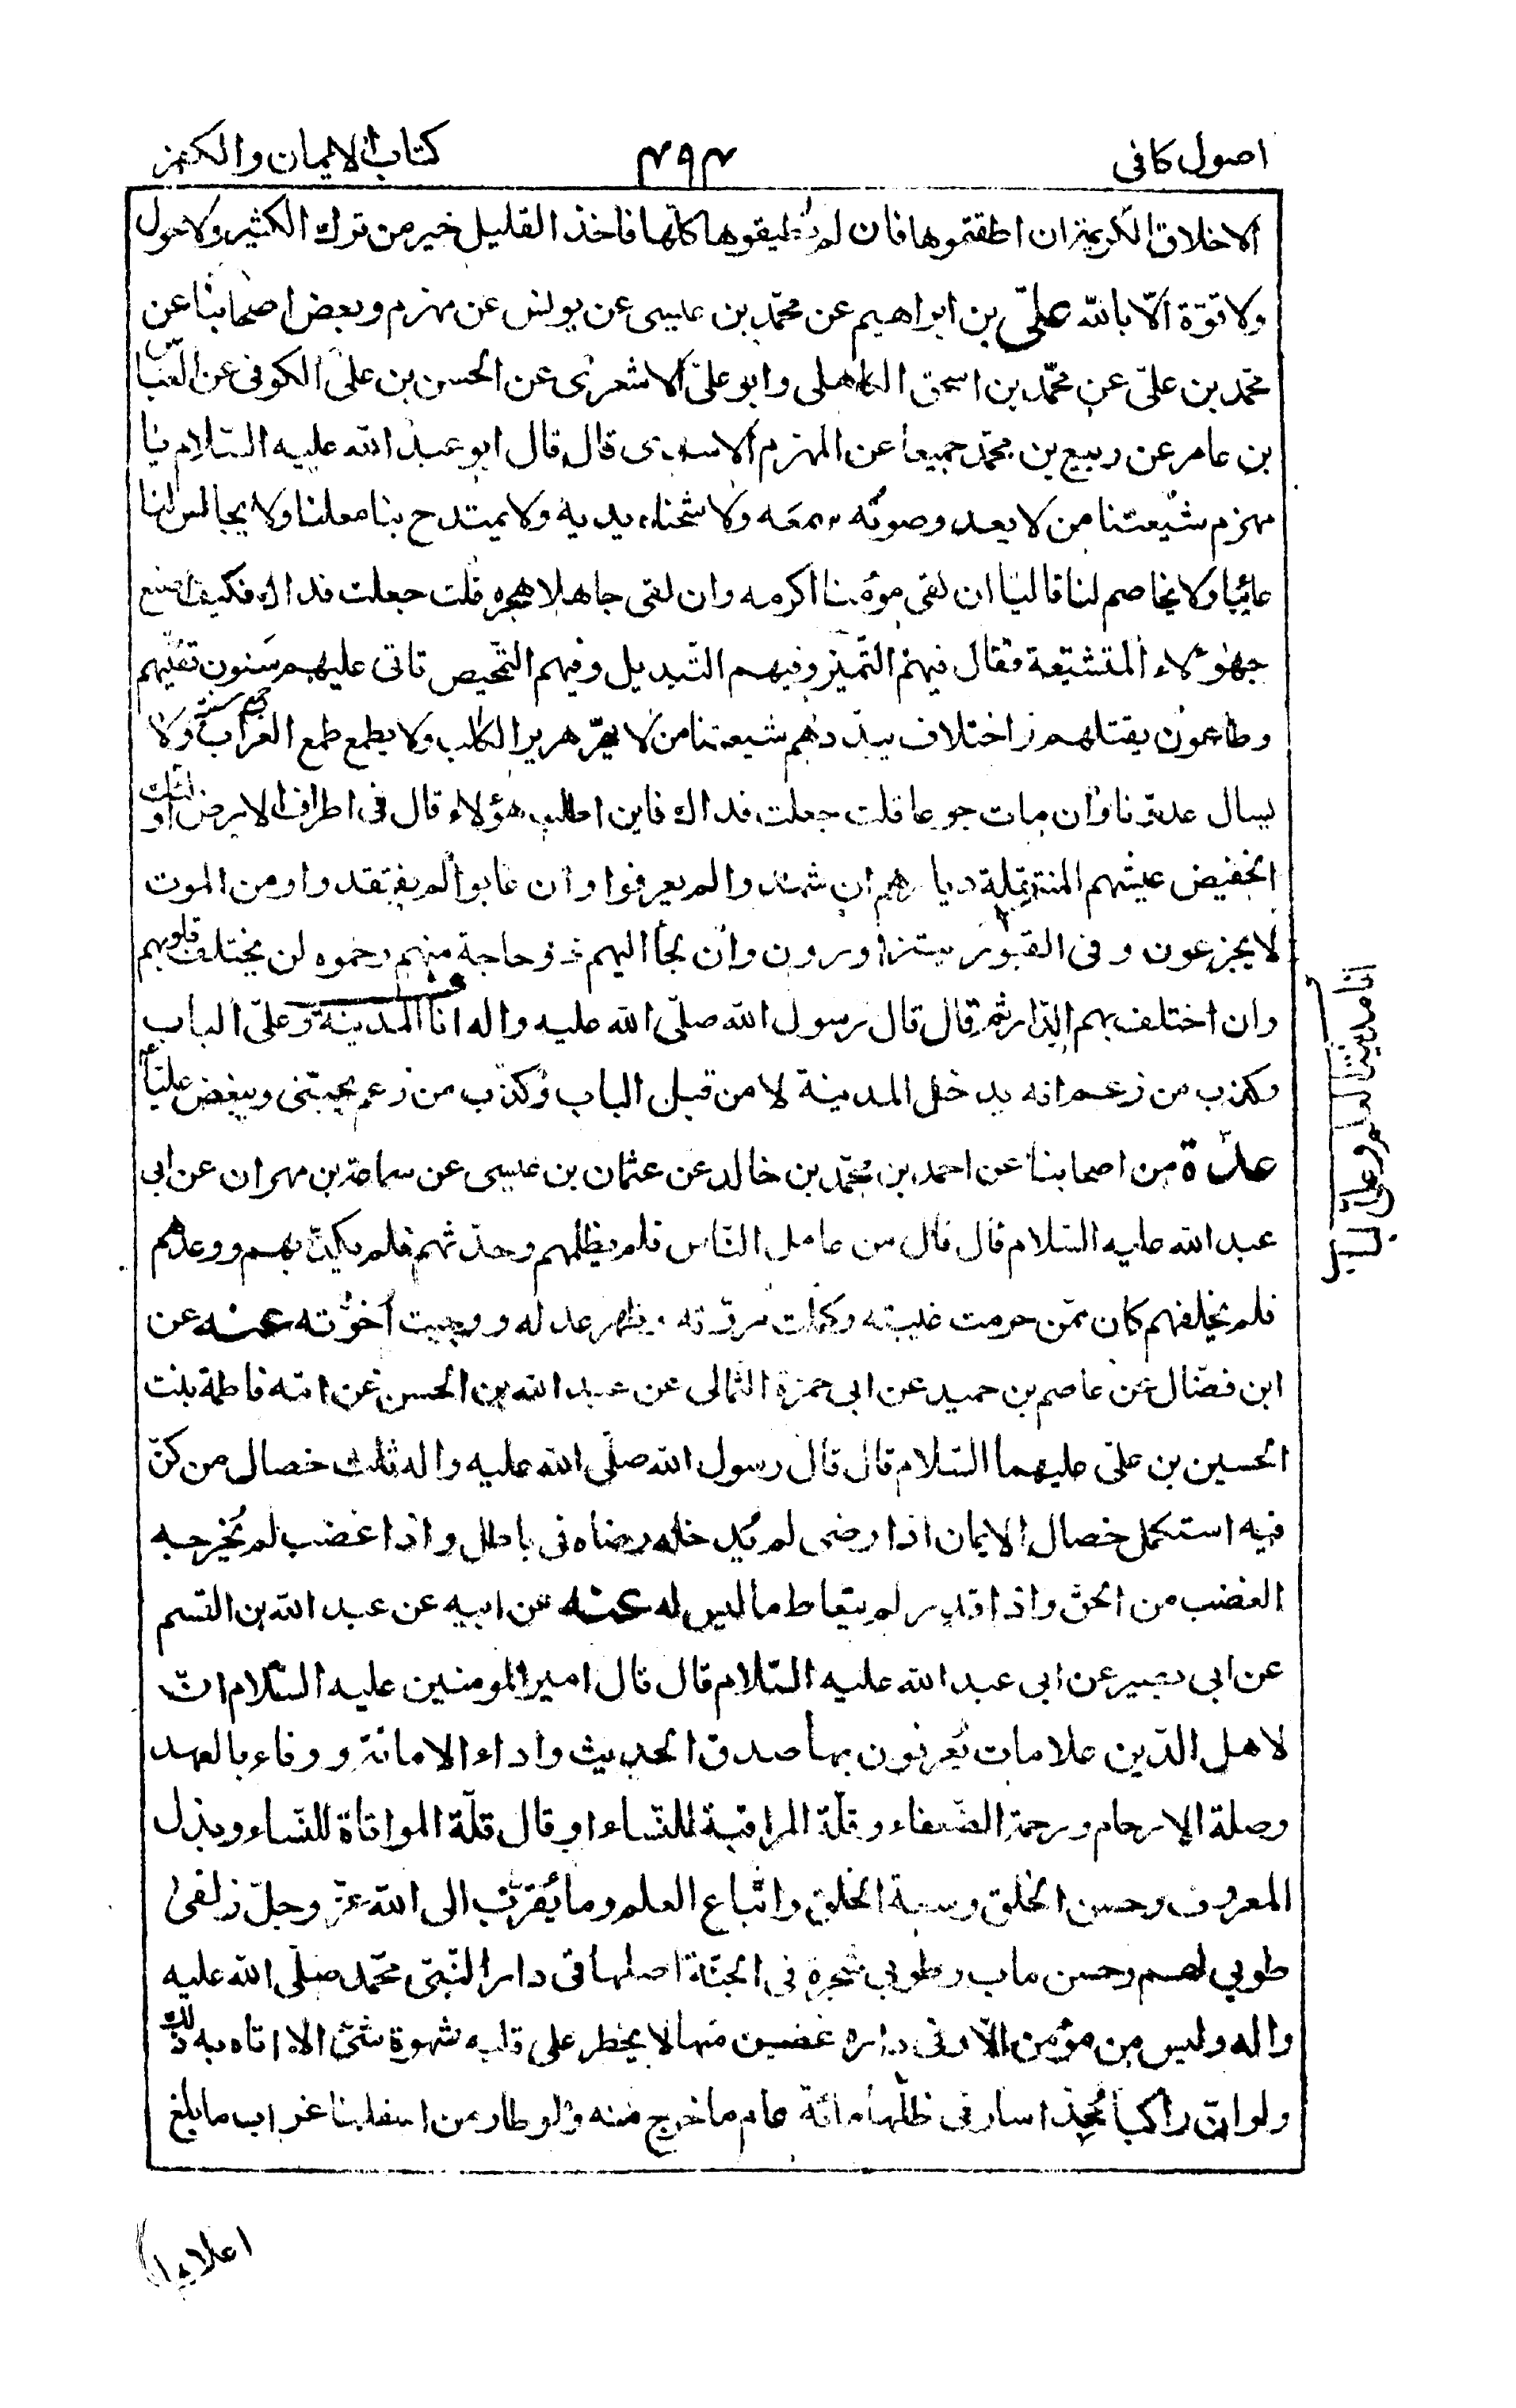 اصول كافى
۴۹۴
كتاب الايمان والكفر
الاخلاق الكريمة ان اطقتموها فان لم تطيقوها كلّها فاخذ القليل خير من ترك الكثير ولا حول
ولا قوّة الّا بالله علىّ بن ابراهيم عن محمّد بن عيسى عن يونس عن مهزم وبعض اصحابنا عن
محمّد بن علىّ عن محمّد بن اسحق الكاهلى وابو علىّ الاشعرى عن الحسن بن على الكوفى عن العبّاس
بن عامر عن ربيع بن محمّد جميعا عن المهزم الاسدى قال قال ابو عبد الله عليه السّلام يا
مهزم شيعتنا من لا يعدو صوته سمعه ولا شحناء يديه ولا يمتدح بنا معلنا ولا يجالس لنا
عائبا ولا يخاصم لنا قاليا ان لقى مؤمنا اكرمه وان لقى جاهلا هجره قلت جعلت فداك فكيف اصنع
بهؤلاء المتشيّعة فقال فيهم التّميز وفيهم التّبديل وفيهم التّمحيص تاتى عليهم سنون تفنيهم
وطاعون يقتلهم واختلاف يبدّدهم شيعتنا من لا يهرّ هرير الكلب ولا يطمع طمع الغراب ولا
يسال عدوّنا وان مات جوعا قلت جعلت فداك فاين اطلب هؤلاء قال فى اطراف الارض اولئك
الخفيض عيشهم المنتقلة ديارهم ان شهدوا لم يعرفوا وان غابوا لم يفتقدوا ومن الموت
لا يجزعون وفى القبور يتزاورون وان لجأ اليهم ذو حاجة منهم رحموه لن يختلف قلوبهم
وان اختلف بهم الدّار ثم قال قال رسول الله صلّى الله عليه واله انا المدينة وعلىّ الباب
انا مدينة العلم وعلىّ الباب
وكذب من زعم انه يدخل المدينة لا من قبل الباب وكذب من زعم يحبّنى ويبغض عليّا ع
عدّة من اصحابنا عن احمد بن محمّد بن خالد عن عثمان بن عيسى عن سماعة بن مهران عن ابى
عبد الله عليه السّلام قال قال من عامل النّاس فلم يظلمهم وحدّثهم فلم يكذبهم ووعدهم
فلم يخلفهم كان ممّن حرمت غيبته وكملت مروّته وظهر عدله ووجبت اخوّته عنه عن
ابن فضّال عن عاصم بن حميد عن ابى حمزة الثّمالى عن عبد الله بن الحسن عن امّه فاطمة بنت
الحسين بن علىّ عليهما السّلام قال قال رسول الله صلّى الله عليه واله ثلث خصال من كنّ
فيه استكمل خصال الايمان اذا رضى لم يدخله رضاه فى باطل واذا غضب لم يخرجه
الغضب من الحقّ واذا قدر لم يتعاط ما ليس له عنه عن ابيه عن عبد الله بن القسم
عن ابى بصير عن ابى عبد الله عليه السّلام قال قال امير المومنين عليه السّلام انّ
لاهل الدّين علامات يعرفون بها صدق الحديث واداء الامانة ووفاء بالعهد
وصلة الارحام ورحمة الضّعفاء وقلّة المراقبة للنّساء او قال قلّة المواتاة للنّساء وبذل
المعروف وحسن الخلق وسعة الخلق واتّباع العلم وما يقرّب الى الله عزّ وجلّ زلفى
طوبى لهم وحسن ماب وطوبى شجرة فى الجنّة اصلها فى دار النّبىّ محمّد صلّى الله عليه
واله وليس من مؤمن الّا وفى داره غصن منها لا يخطر على قلبه شهوة شئ الا اتاه به ذلك
ولو انّ راكبا مجدّا سار فى ظلّها مائة عام ما خرج منه ولو طار من اسفلها غراب ما بلغ
اعلاها